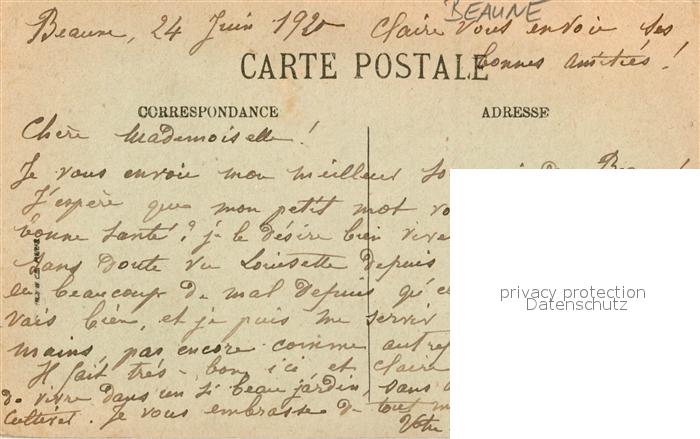 BEAUNE
Beaune, 24 Juin 1920 Claire vous envoie ses
bonnes amitiés !
CARTE POSTALE
CORRESPONDANCE
ADRESSE
Chère Mademoiselle !
Je vous envoie mon meilleur
J'espère que mon petit mot
bonne santé ? je le désire bien
Sans doute vu Louisette depuis
eu beaucoup de mal depuis
vais bien, et je puis me servir
mains, pas encore comme
Il fait très-bon ici et Claire
de vivre dans un si beau jardin sans
cultiver. Je vous embrasse de tout
Votre
privacy protection
Datenschutz